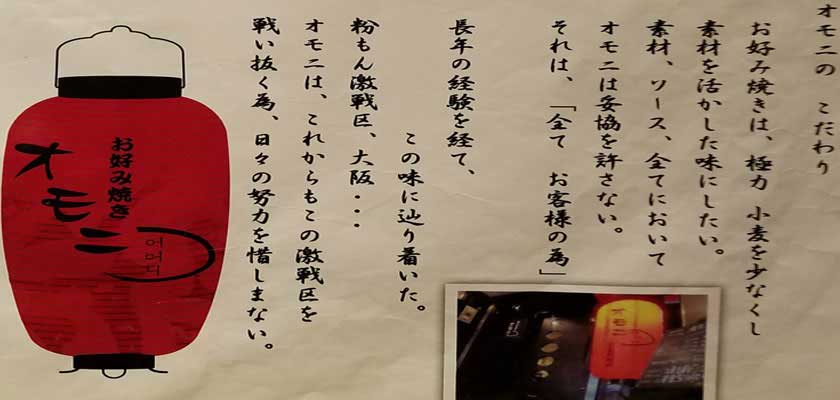 オモニの こだわり
お好み焼きは、極力 小麦を少なくし
素材を活かした味にしたい。
素材、ソース、全てにおいて
オモニは妥協を許さない。
それは、「全て お客様の為」
長年の経験を経て、
この味に辿り着いた。
粉もん激戦区、大阪・・・
オモニは、これからもこの激戦区を
戦い抜く為、日々の努力を惜しまない。
お好み焼き
オモニ
어머니
オモニ